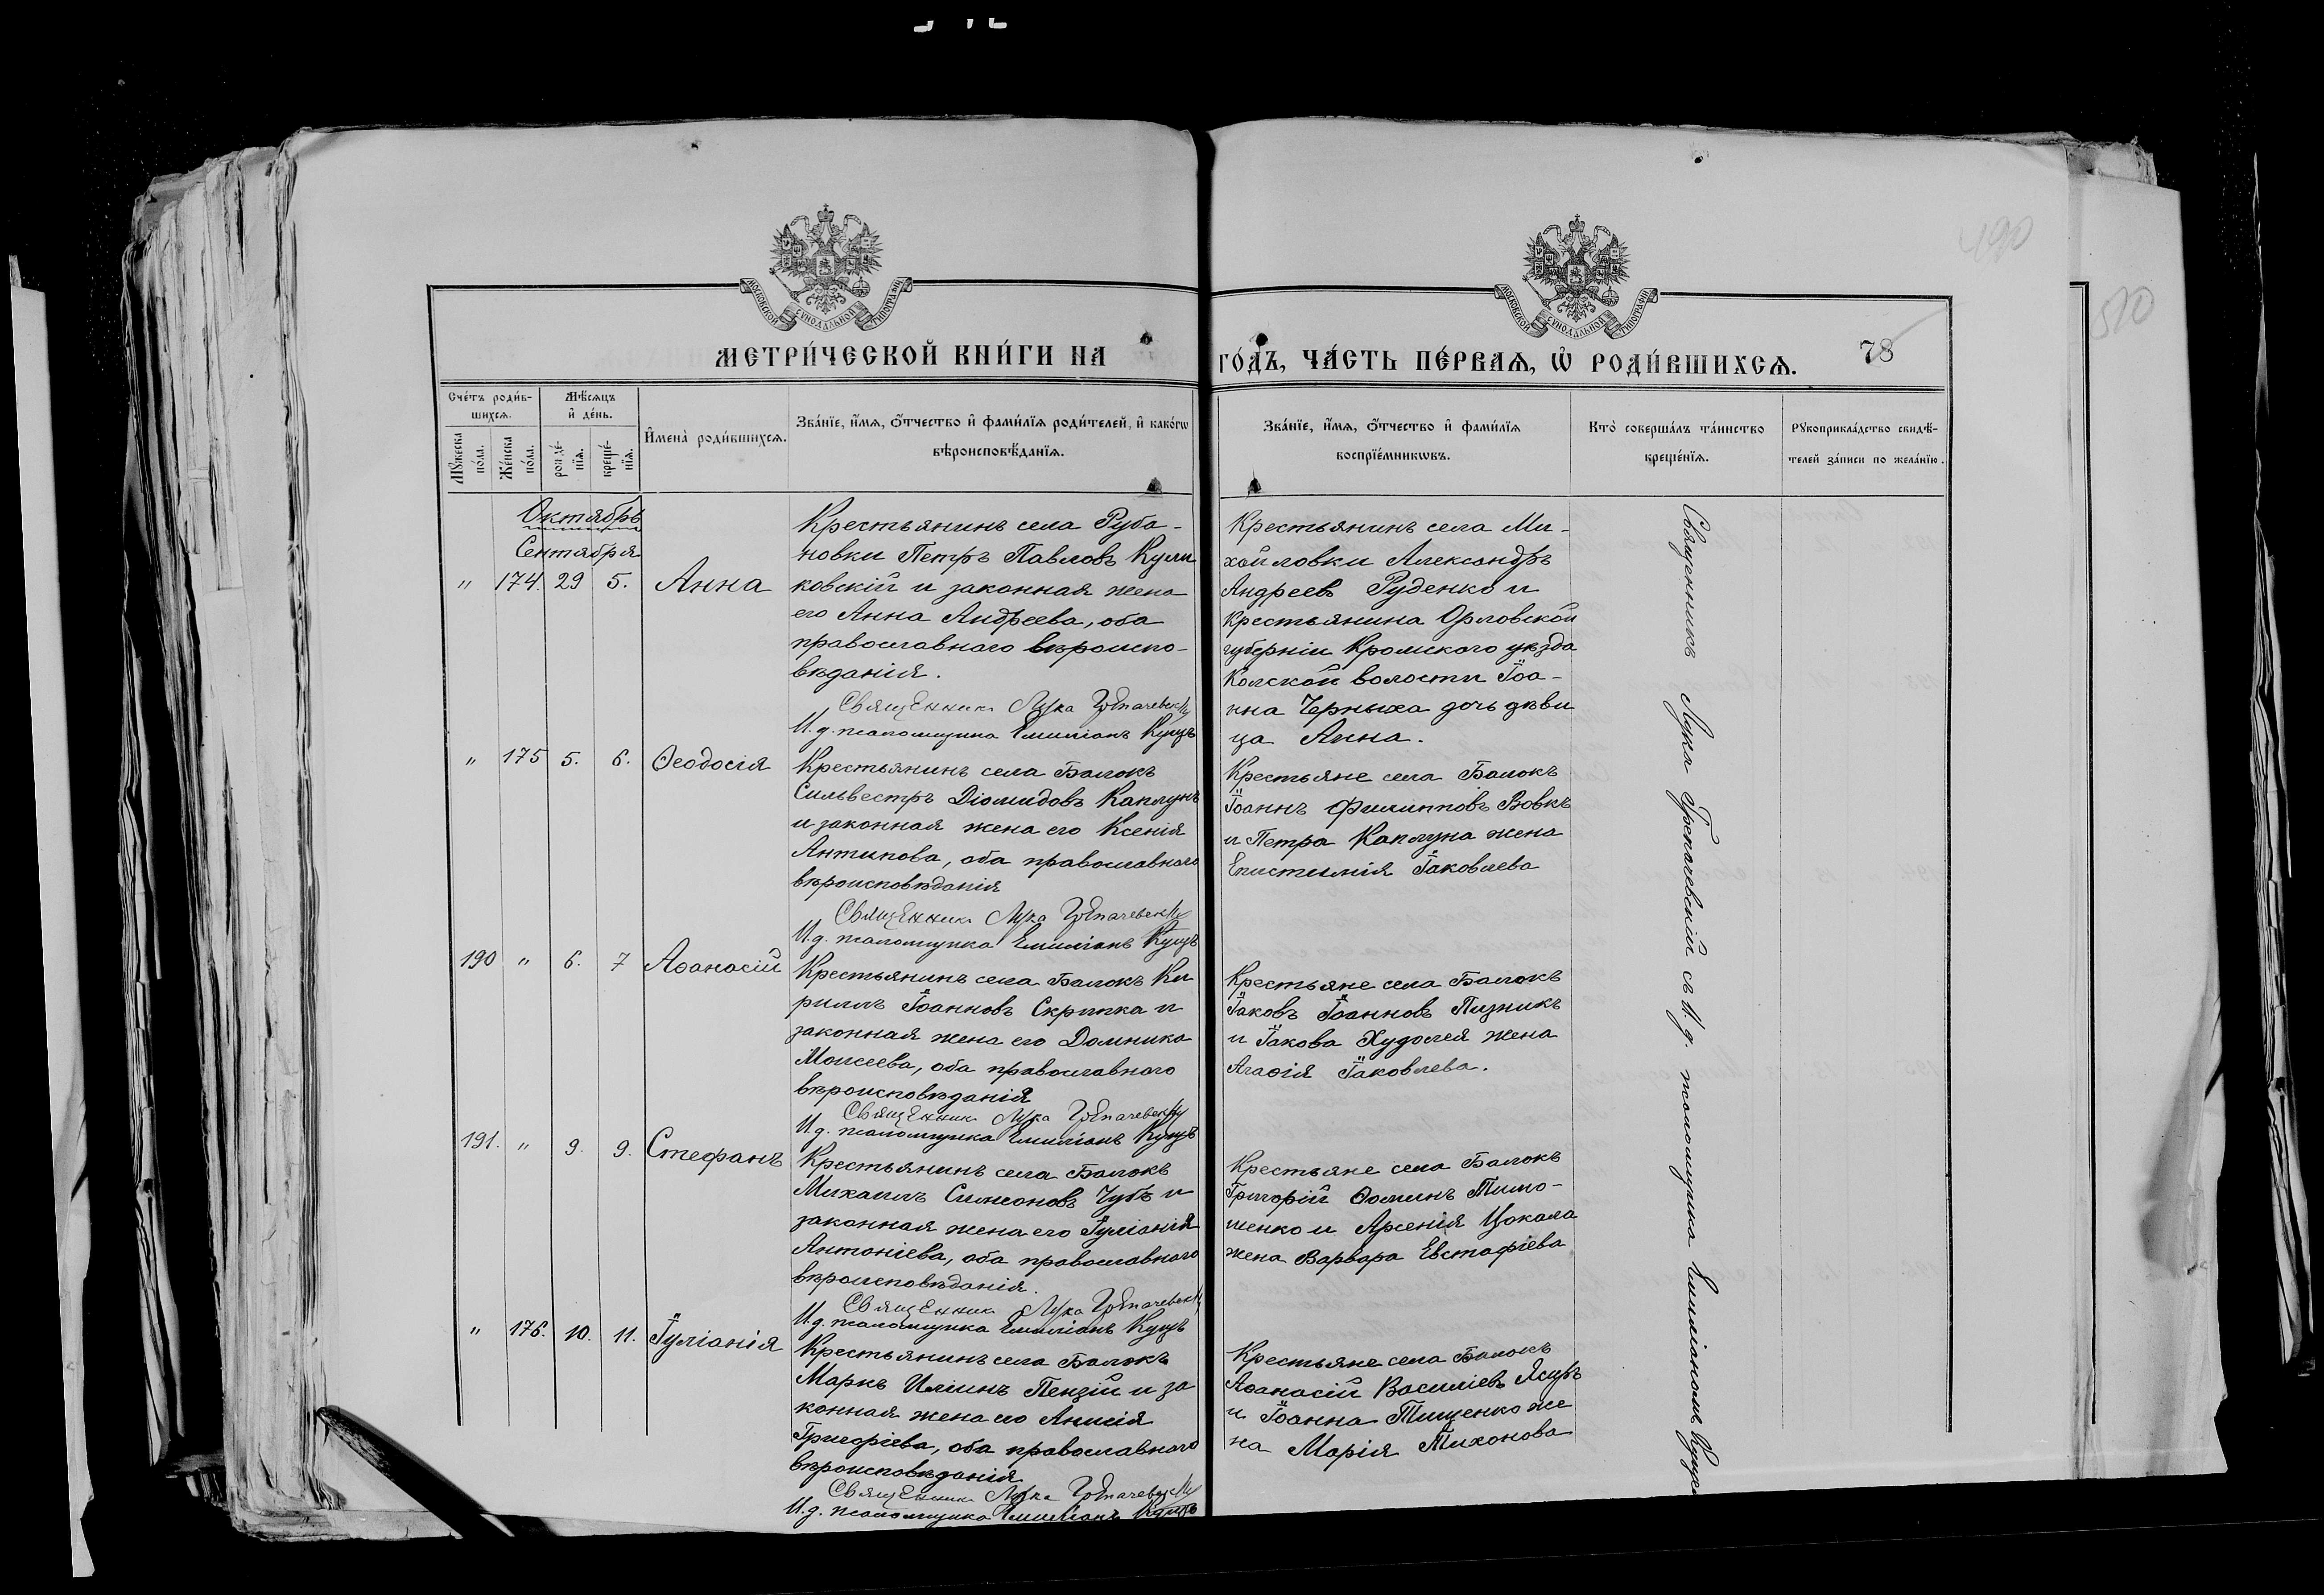 490
510
МОСКОВСКОЙ СѴНОДАЛЬНОЙ ТИПОГРАФІИ
МОСКОВСКОЙ СѴНОДАЛЬНОЙ ТИПОГРАФІИ
МЕТРИ́ЧЕСКОЙ КНИ́ГИ НА
ГО́ДЪ, ЧА́СТЬ ПЕ́РВАѦ, Ѡ҆ РОДИ́ВШИХСѦ.
78
Сче́тъ роди́в-
шихсѧ.
Мѣ́сяцъ
и҆ де́нь.
Мꙋ́жеска
по́ла.
Же́нска
по́ла.
рожде́-
нїѧ.
креще́-
нїѧ.
И҆мена̀ роди́вшихсѧ.
Зва́нїе, и҆́мѧ, ѻ҆́тчество и҆ фами́лїѧ роди́телей, и҆ како́гѡ
вѣроисповѣ́данїѧ.
Зва́нїе, и҆́мѧ, ѻ҆́тчество и҆ фами́лїѧ
воспрїе́мникѡвъ.
Кто̀ соверша́лъ та́инство
креще́нїѧ.
Рꙋкоприкла́дство свидѣ́-
телей за́писи по жела́нїю.
Октябрь
Сентября
" 174. 29 5. Анна
Крестьянинъ села Руба-
новки Петръ Павловъ Кули
ковскій и законная жена
его Анна Андреева, оба
православнаго вѣроиспо-
вѣданія.
Священникъ Лука Грепачевскій
И.д. псаломщика Емиліанъ Кущъ
Крестьянинъ села Ми-
хайловки Александръ
Андреевъ Руденко и
крестьянина Орловской
губерніи Кромскаго уѣзда
Колской волости Іоа-
нна Черныха дочь дѣви
ца Анна.
" 175 5. 6. Ѳеодосія
Крестьянинъ села Балокъ
Сильвестръ Діомидовъ Каплунъ
и законная жена его Ксенія
Антипова, оба православнаго
вѣроисповѣданія
Священникъ Лука Грепачевскій
И.д. псаломщика Емиліанъ Кущъ
Крестьяне села Балокъ
Іоаннъ Филипповъ Вовкъ
и Петра Каплуна жена
Епистимія Іаковлева
190 " 6. 7 Аѳанасій
Крестьянинъ села Балокъ Ки
риллъ Іоанновъ Скрипка и
законная жена его Домника
Моисеева, оба православнаго
вѣроисповѣданія
Священникъ Лука Грепачевскій
И.д. псаломщика Емиліанъ Кущъ
Крестьяне села Балокъ
Іаковъ Іоанновъ Пизникъ
и Іакова Худолея жена
Агаѳія Іаковлева.
191. " 9. 9. Стефанъ
Крестьянинъ села Балокъ
Михаилъ Симеоновъ Чубъ и
законная жена его Іуліанія
Антоніева, оба православнаго
вѣроисповѣданія.
Священникъ Лука Грепачевскій
И.д. псаломщика Емиліанъ Кущъ
Крестьяне села Балокъ
Григорій Ѳоминъ Тимо-
шенко и Арсенія Цокала
жена Варвара Евстафіева
" 176. 10. 11. Іуліанія
Крестьянинъ села Балокъ
Маркъ Иліинъ Пензій и за
конная жена его Анисія
Григоріева, оба православнаго
вѣроисповѣданія
Священникъ Лука Грепачевскій
И.д. псаломщика Емиліанъ Кущъ
Крестьяне села Балокъ
Аѳанасій Василіевъ
и Іоанна Тищенко же
на Марія Тихонова
Священникъ Лука Грепачевскій съ И.д. псаломщика Емиліаномъ Кущемъ